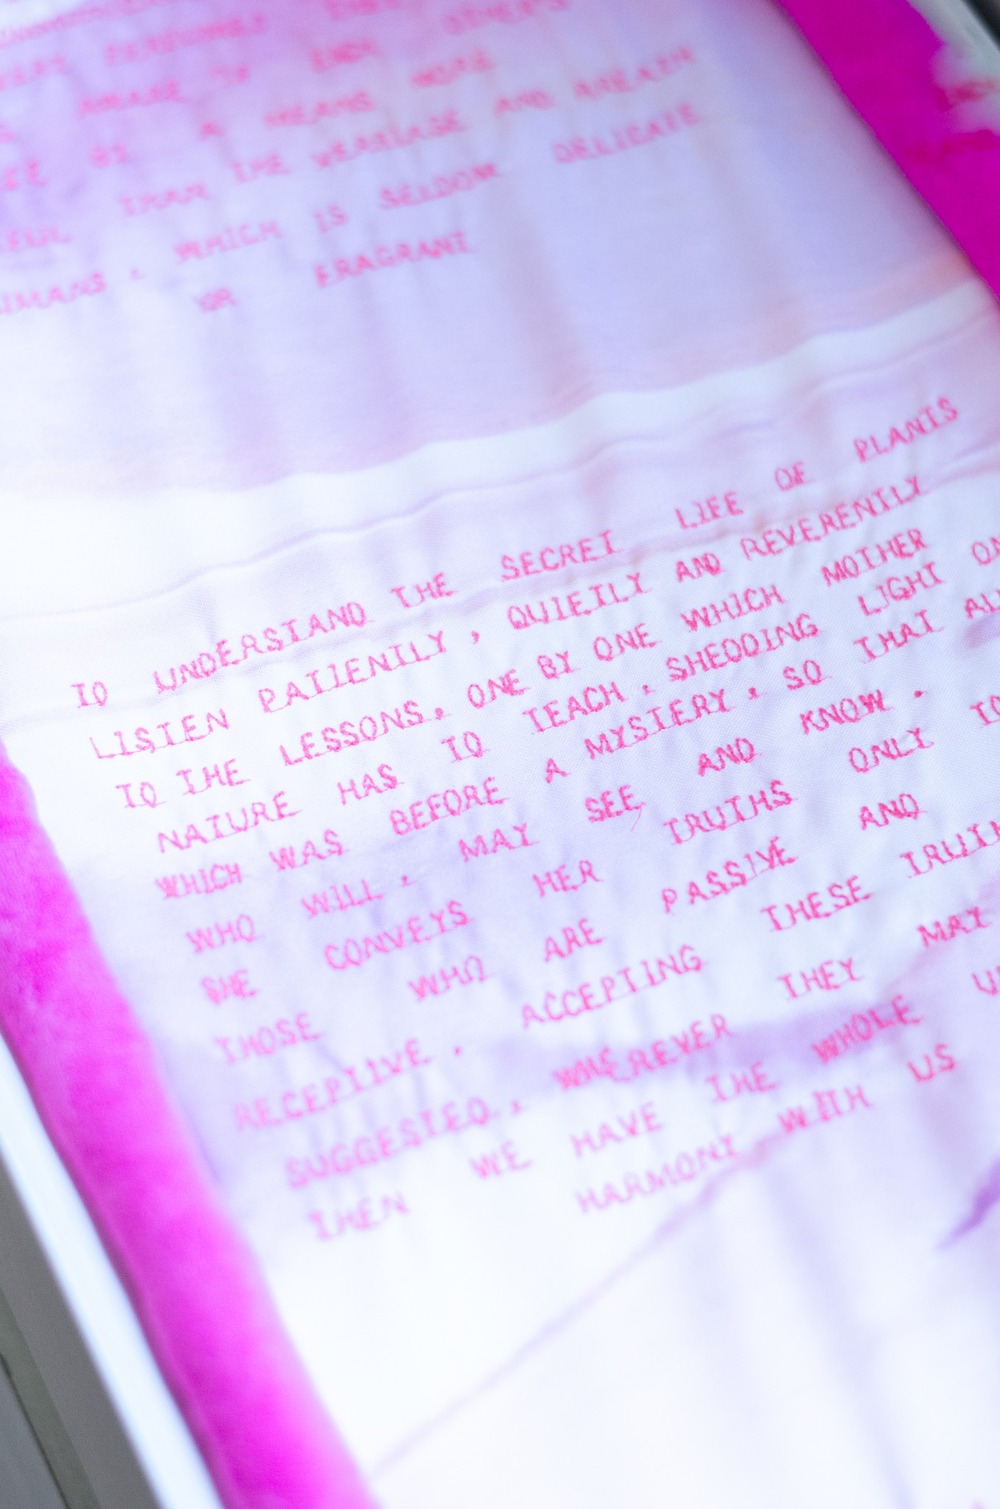 BY A MEANS MORE
THAN THE VERBIAGE AND BREATH
, WHICH IS SELDOM DELICATE
OR FRAGRANT
TO UNDERSTAND THE SECRET LIFE OF PLANTS
LISTEN PATIENTLY , QUIETLY AND REVERENTLY
TO THE LESSONS, ONE BY ONE WHICH MOTHER
NATURE HAS TO TEACH , SHEDDING LIGHT ON
WHICH WAS BEFORE A MYSTERY , SO THAT ALL
WHO WILL , MAY SEE AND KNOW .
SHE CONVEYS HER TRUTHS ONLY TO
THOSE WHO ARE PASSIVE AND
RECEPTIVE . ACCEPTING THESE
SUGGESTED , WHEREVER THEY MAY
THEN WE HAVE THE WHOLE
HARMONY WITH US